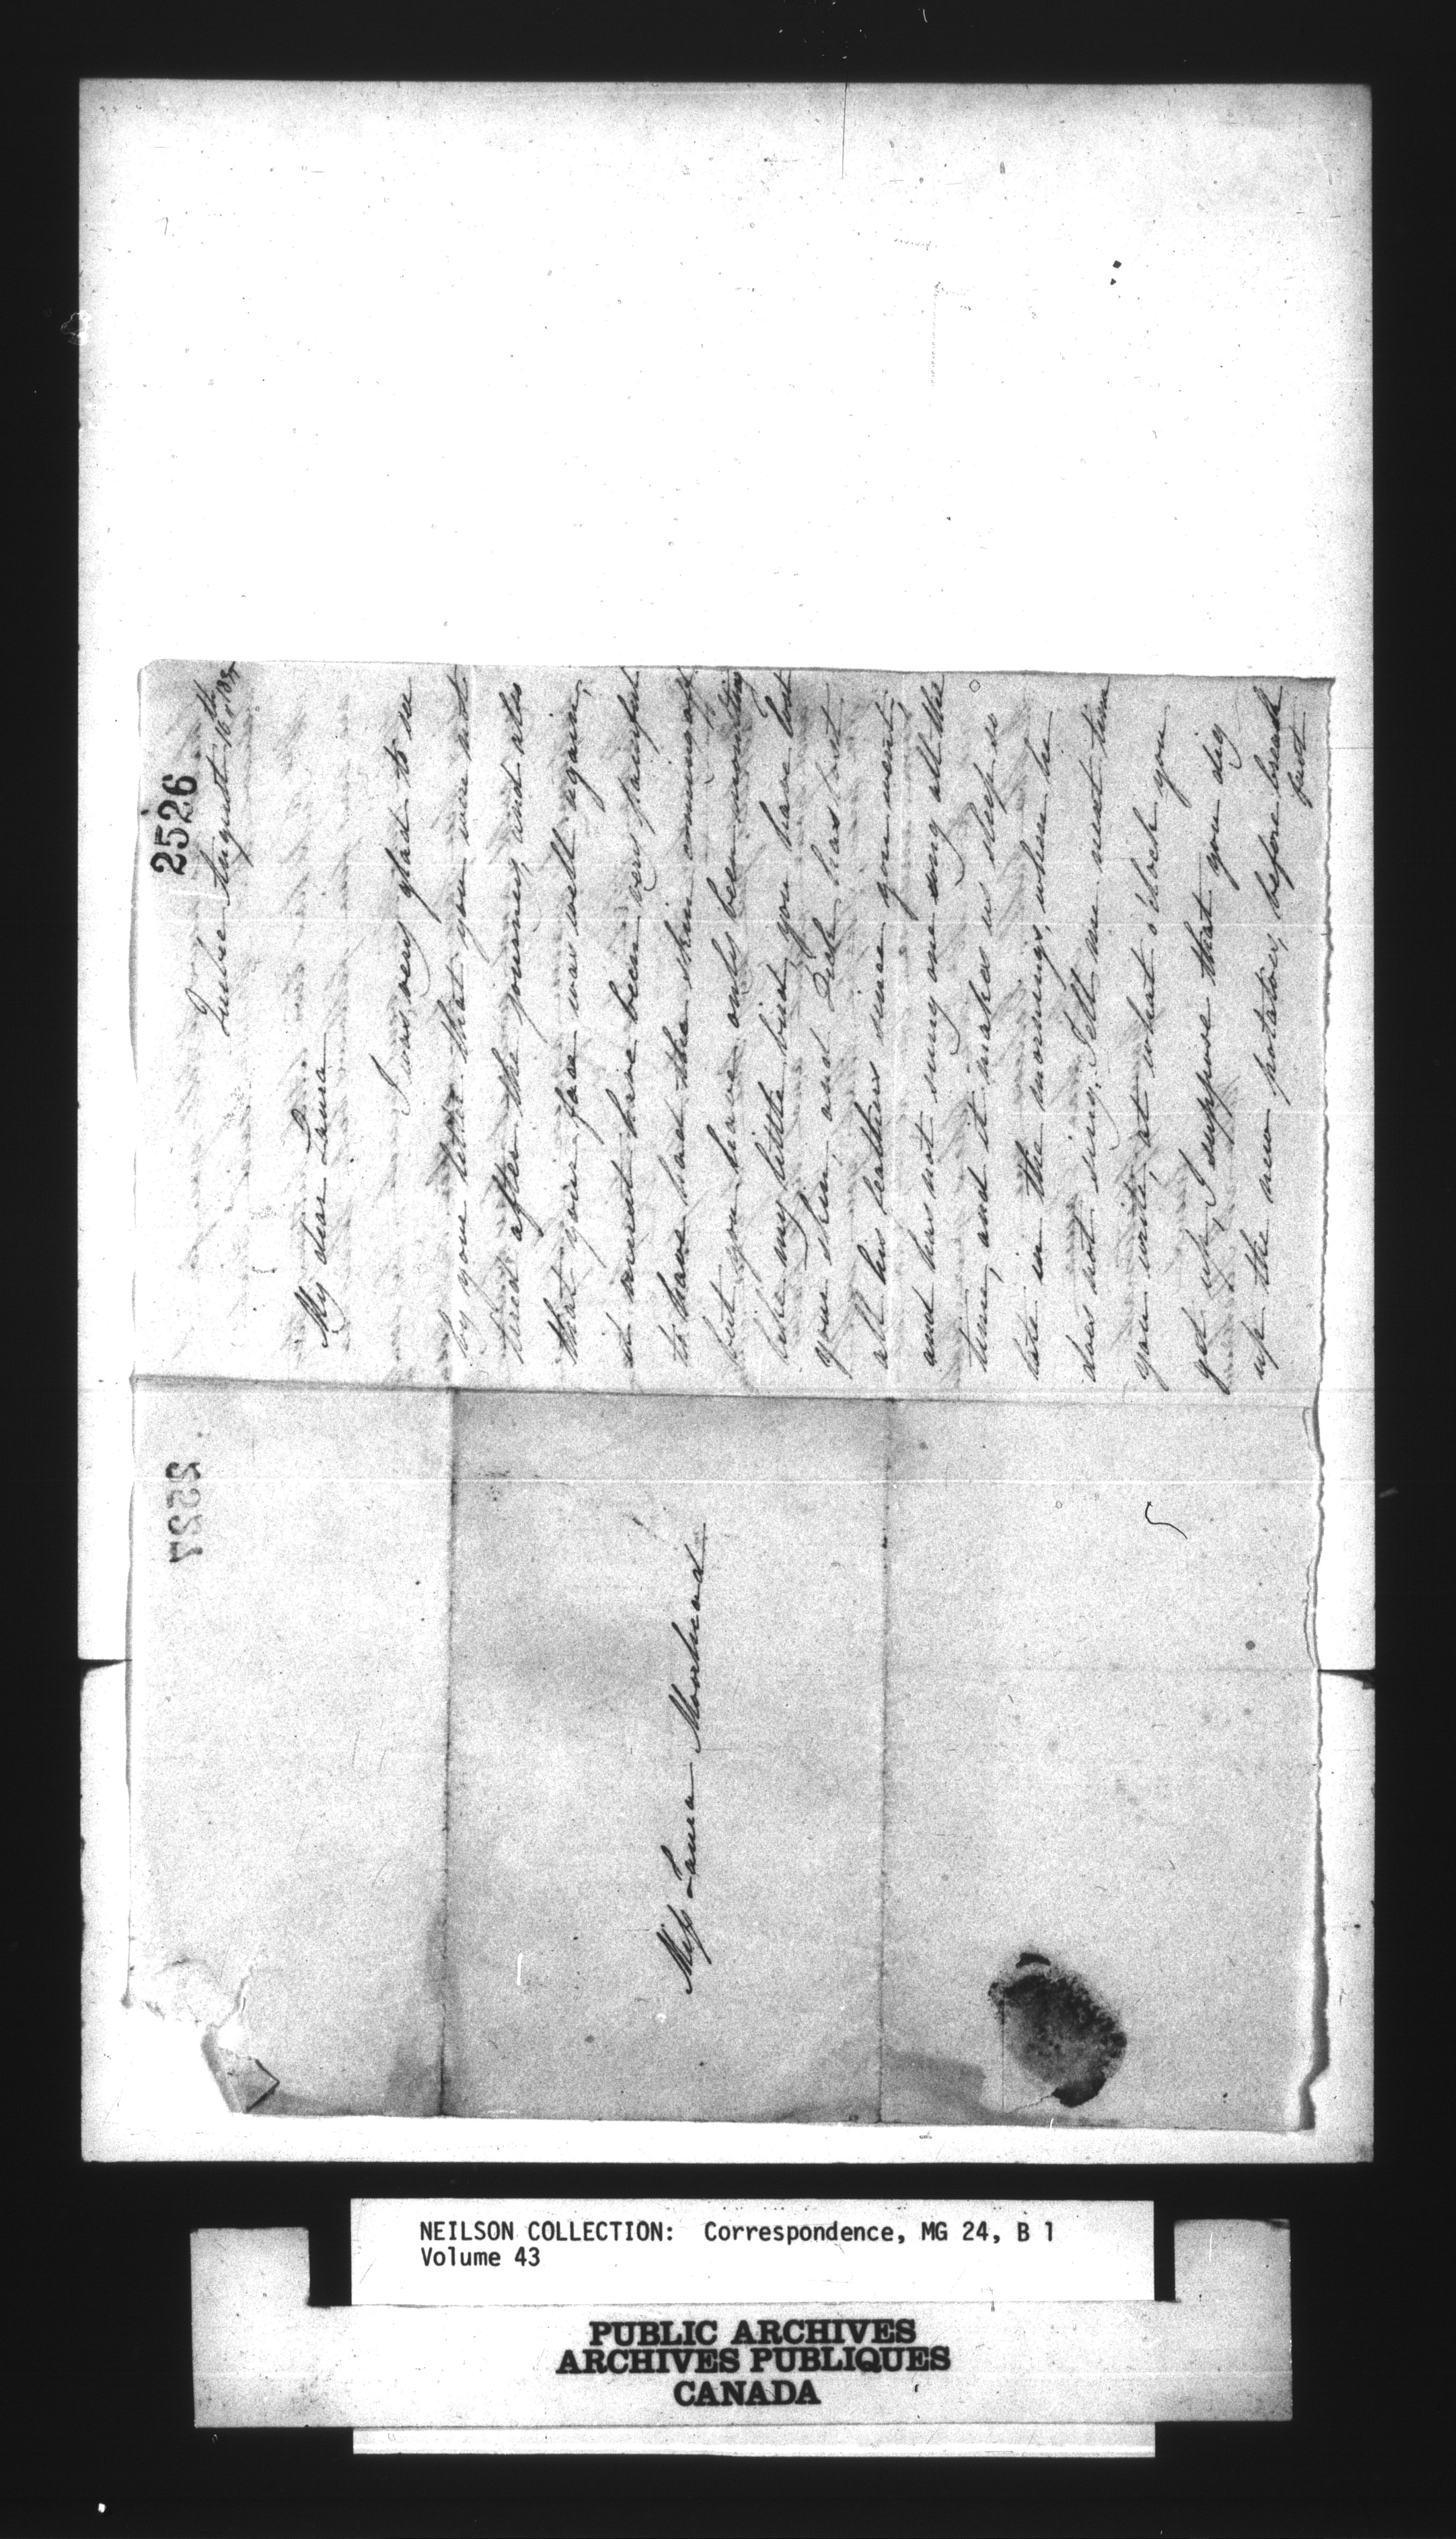 2526
Quebec August 16th
My dear Laura
I was very glad to see
by your letter that you were not
tired after the journey, and also
that your face was well again,
it must have been very painful
to have had the skin comming off
but you have only been moulting
like my little bird, you have lost
your skin, and Dick has lost
all his feathers since you went,
and has not sung one song all the
time, and it makes us sleep so
late in the mornings, when he
does not sing. Tell me next time
you write, at what o'clock you
get up, I suppose that you dig
up the new potatoes, before break
fast
2527
Miss Laura Moorhead
NEILSON COLLECTION: Correspondence, MG 24, B 1
Volume 43
PUBLIC ARCHIVES
ARCHIVES PUBLIQUES
CANADA